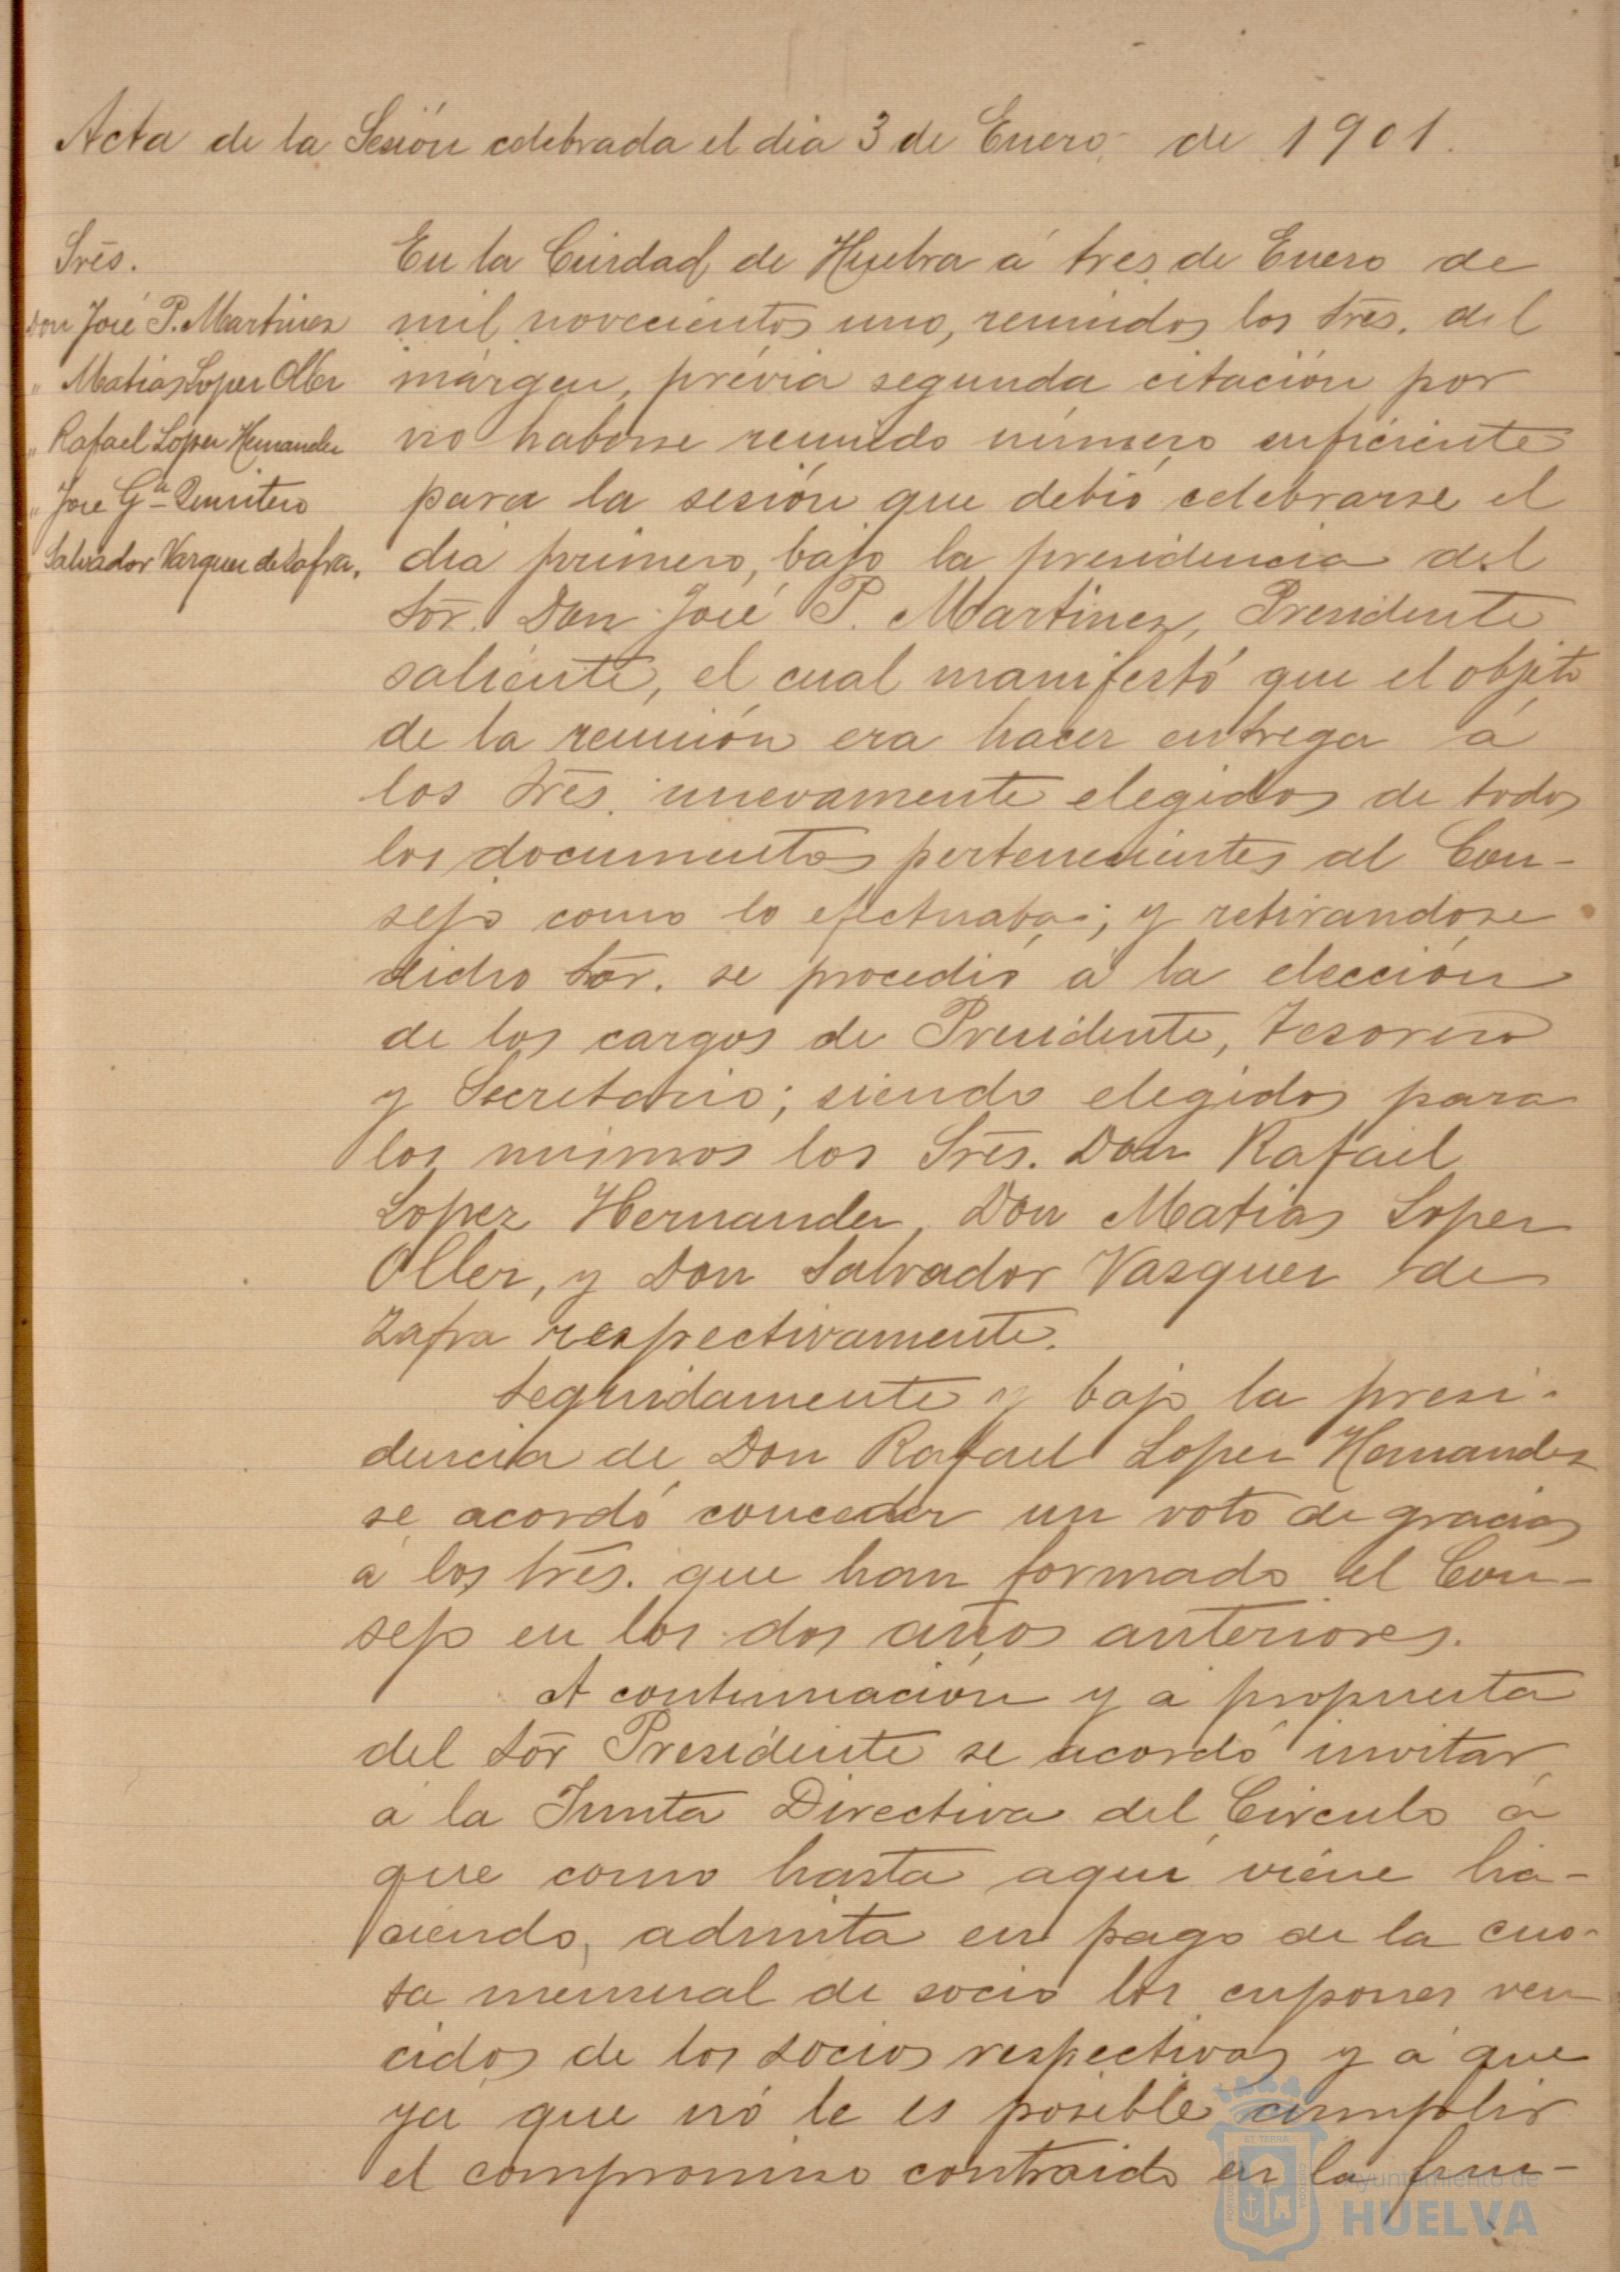 Acta de la Sesión celebrada el dia 3 de Enero de 1901.
Sres.
Don José P. Martinez
" Matias Lopez Oller
" Rafael Lopez Hernandez
" Jose Gª Quintero
Salvador Vazquez de Zafra.
En la Ciudad de Huelva á tres de Enero de
mil novecientos uno, reunidos los Sres. del
márgen, prévia segunda citación por
no haberse reunido número suficiente
para la sesión que debió celebrarse el
dia primero, bajo la presidencia del
Sor. Don José P. Martinez, Presidente
saliente, el cual manifestó que el objeto
de la reunión era hacer entrega á
los Sres. nuevamente elegidos de todos
los documentos pertenecientes al Con-
sejo como lo efectuaba; y retirandose
dicho Sor. se procedió á la elección
de los cargos de Presidente, Tesorero
y Secretario; siendo elegidos para
los mismos los Sres. Don Rafael
Lopez Hernandez, Don Matias Lopez
Oller, y Don Salvador Vazquez de
Zafra respectivamente.
Seguidamente y bajo la presi-
dencia de Don Rafael Lopez Hernandez
se acordó conceder un voto de gracias
á los Sres. que han formado el Con-
sejo en los dos años anteriores.
A continuación y á propuesta
del Sor Presidente se acordó invitar
á la Junta Directiva del Circulo á
que como hasta aquí viene ha-
ciendo, admita en pago de la cuo-
ta mensual de socio los cupones ven
cidos de los socios respectivos y á que
ya que nó le es posible cumplir
el compromiso contraido en la fun-
ET TERRÆ
Ayuntamiento de
HUELVA